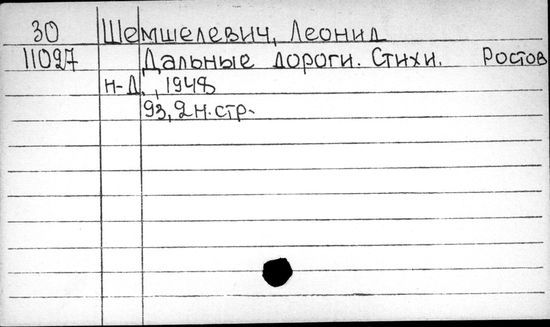 30 Шемшелевич, Леонид
11027 Дальные дороги. Стихи. Ростов
н-Д., 1948
93, 2 н. стр.